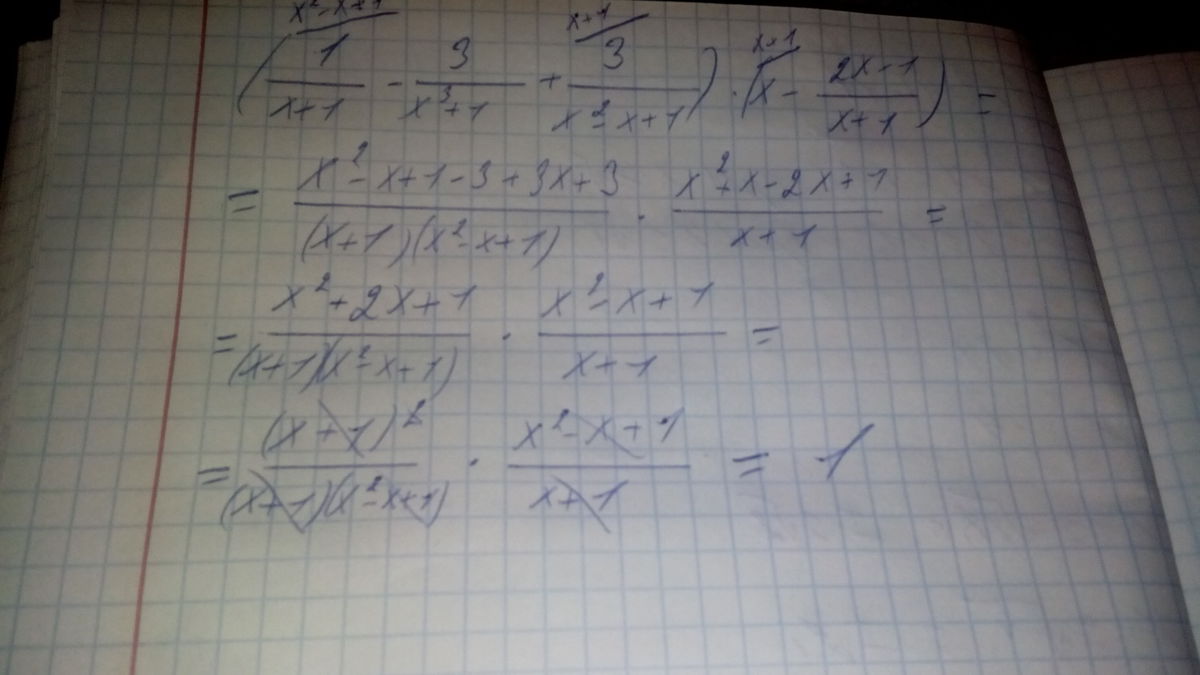 x²-x+1 x+1 x+1
(1/(x+1) - 3/(x³+1) + 3/(x²-x+1)) · (x - (2x-1)/(x+1)) =
= (x²-x+1-3+3x+3)/((x+1)(x²-x+1)) · (x²+x-2x+1)/(x+1) =
= (x²+2x+1)/((x+1)(x²-x+1)) · (x²-x+1)/(x+1) =
= (x+1)²/((x+1)(x²-x+1)) · (x²-x+1)/(x+1) = 1